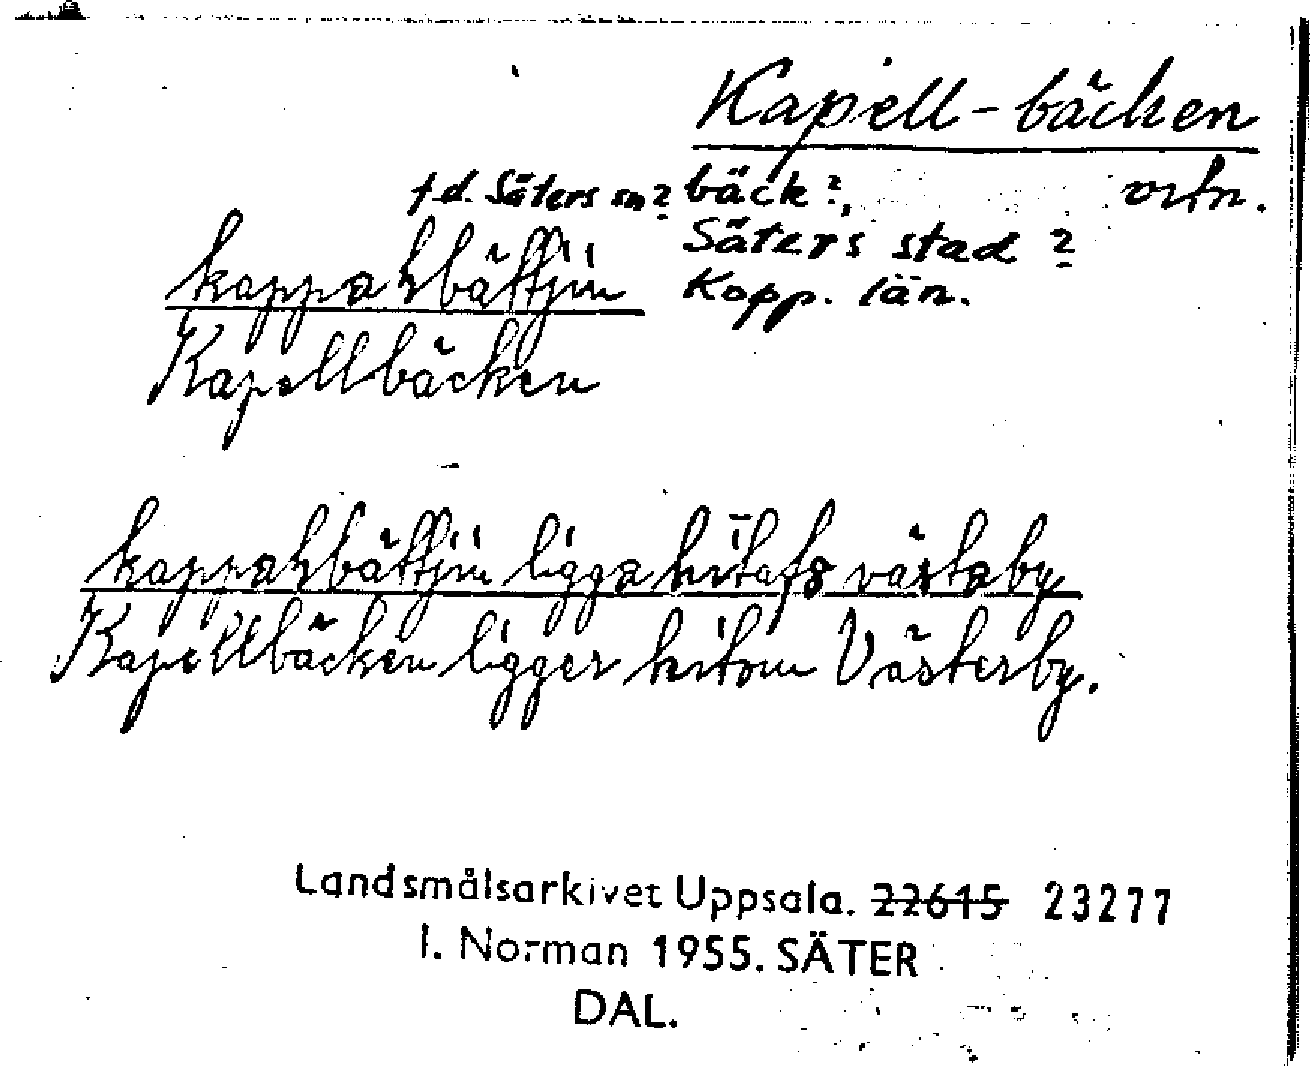 Kapell-bäcken
f.d. Säters sn? bäck?, ortn.
Säters stad?
Kopp. län.
Kapellbäcken
Kapellbäcken ligger hitom Västerby.
Landsmålsarkivet Uppsala. 22615 23277
I. Norman 1955. SÄTER
DAL.